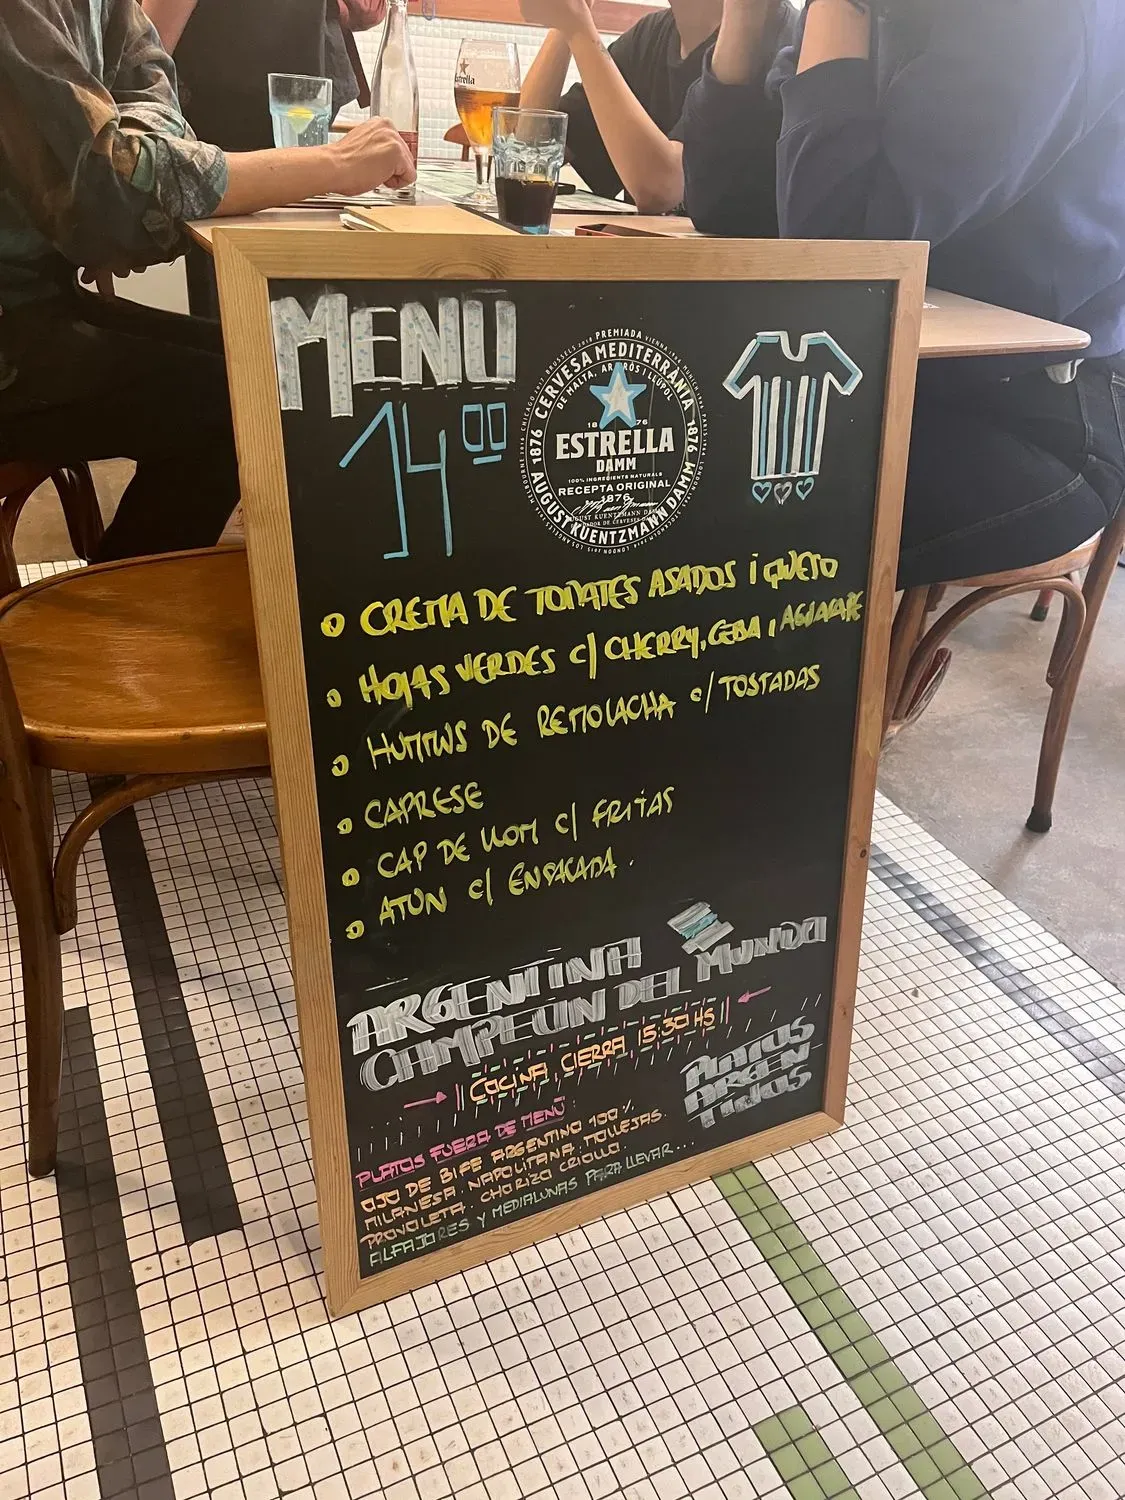 MENÚ
14 00
PREMIADA
CERVESA MEDITERRÀNIA
DE MALTA, ARRÒS I LLÚPOL
1876
1876
18 76
ESTRELLA
DAMM
100% INGREDIENTS NATURALS
RECEPTA ORIGINAL
1876
AUGUST KUENTZMANN DAMM
CREMA DE TOMATES ASADOS i QUESO
HOJAS VERDES C/ CHERRY, CEBA i AGUACATE
HUMMUS DE REMOLACHA C/ TOSTADAS
CAPRESE
CAP DE LLOM C/ FRITAS
ATÚN C/ ENSALADA.
ARGENTINA
CAMPEÓN DEL MUNDO
COCINA CIERRA 15:30 HS
PLATOS
ARGEN
TINOS
PLATOS FUERA DE MENÚ:
OJO DE BIFE ARGENTINO 100%
MILANESA NAPOLITANA. MOLLEJAS.
PROVOLETA. CHORIZO CRIOLLO
ALFAJORES Y MEDIALUNAS PARA LLEVAR...
Estrella